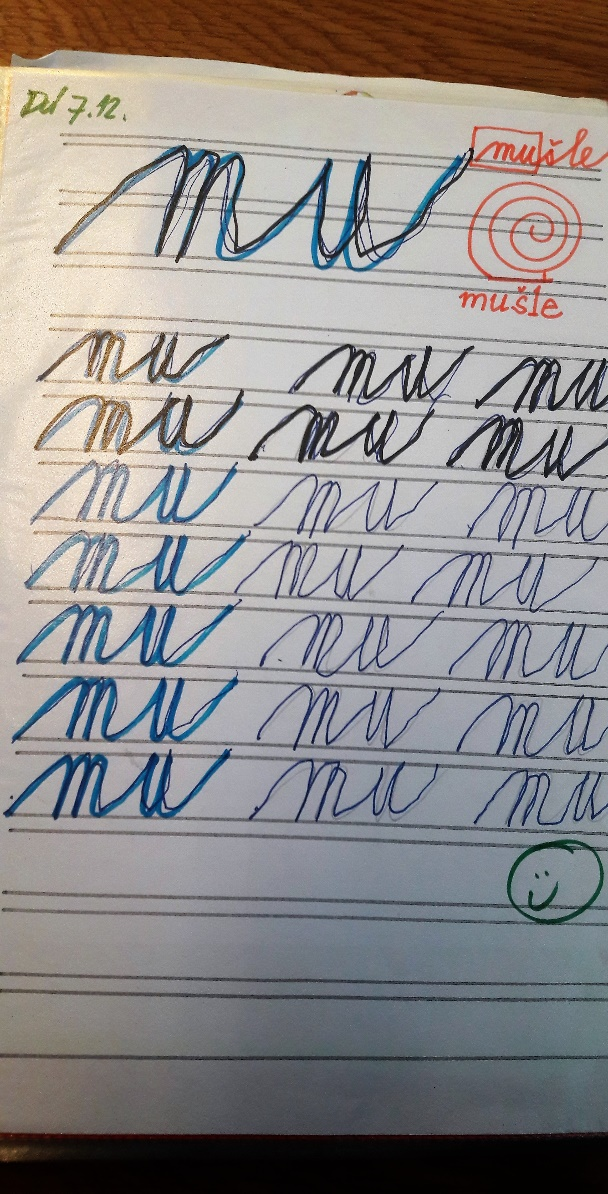 DÚ 7.12.
mu mušle
mušle
mu mu mu
mu mu mu
mu mu mu
mu mu mu
mu mu mu
mu mu mu
mu mu mu